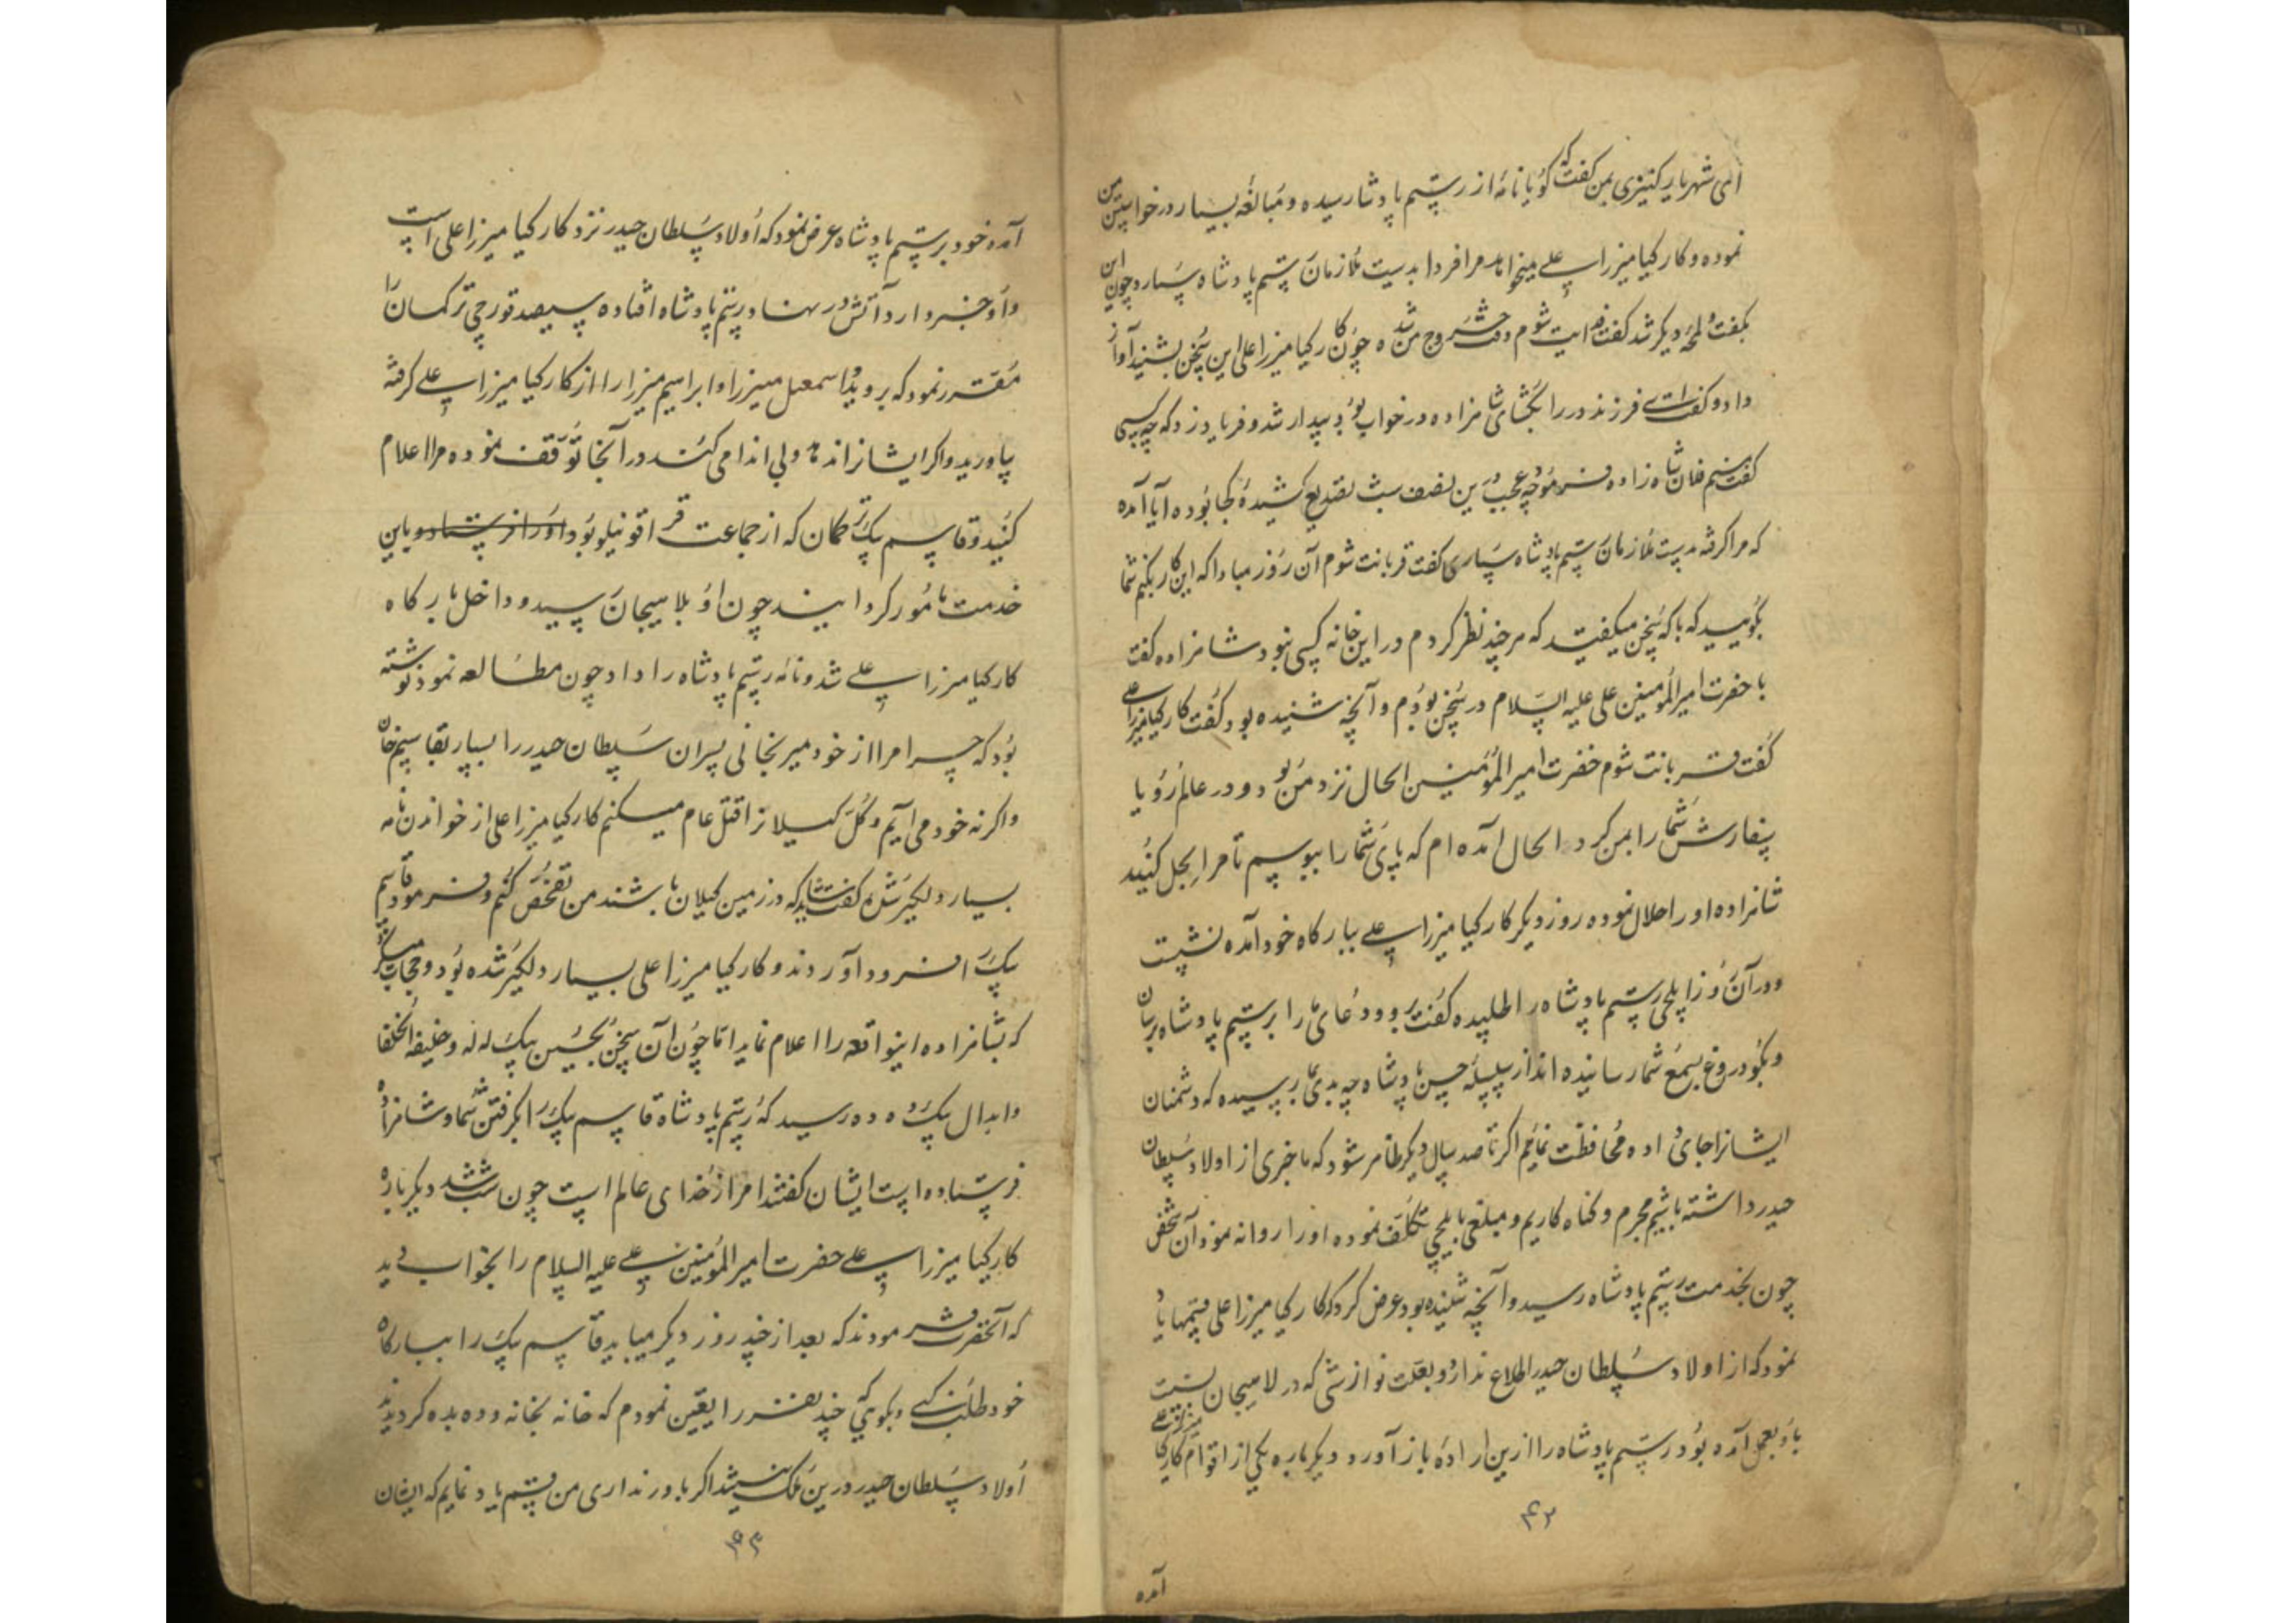 ای شهریار کنیزی بمن گفت که گویا نامه از رستم پادشاه رسیده و مبالغه بسیار در خواستن من
نموده و کارکیا میرزا علی میخواهد مرا فردا بدست ملازمان رستم پادشاه سپارد چون این
بگفت و لمحه دیگر شد گفت فدایت شوم وقت خروج من شده چون کارکیا میرزا علی این سخن بشنید آواز
داد و گفت ای فرزند در را بگشای شاهزاده در خواب بود بیدار شد و فریاد زد که چه کسی
گفت منم فلان شاهزاده فرمود چه عجب درین نصف شب تصدیع کشیدهٔ کجا بوده آیا آمده
که مرا گرفته بدست ملازمان رستم پادشاه سپاری گفت قربانت شوم آن روز مبادا که این کار بکنم شما
بگویید که با که سخن میگفتید که هر چند نظر کردم در این خانه کسی نبود شاهزاده گفت
با حضرت امیرالمومنین علی علیه السلام در سخن بودم و آنچه شنیده بود گفت کارکیا میرزا علی
گفت قربانت شوم حضرت امیر المؤمنین الحال نزد من بود و در عالم رؤیا
سفارش شما را بمن کرد الحال آمده ام که پای شما را ببوسم تا مرا بحل کنید
شاهزاده او را حلال نموده روز دیگر کارکیا میرزا علی ببارگاه خود آمده نشست
و در آن روز ایلچی رستم پادشاه را طلبیده گفت برو و دعای ما را برستم پادشاه برسان
و بگو دروغ بسمع شما رسانیده اند از سلسله حسن پادشاه چه بدی بما رسیده که دشمنان
ایشانرا جای داده محافظت نمائیم اگر تا صد سال دیگر ظاهر شود که ما خبری از اولاد سلطان
حیدر داشته باشیم مجرم و گناه کاریم و مبلغی بایلچی تکلف نموده او را روانه نمود آن شخص
چون بخدمت رستم پادشاه رسید و آنچه شنیده بود عرض کرد که کارکیا میرزا علی قسمها یاد
نمود که از اولاد سلطان حیدر اطلاع ندارد و بعلت نوازشی که در لاهیجان نسبت
باو بعمل آمده بود رستم پادشاه را ازین اراده باز آورد و دیگر باره یکی از اقوام کارکیا میرزا علی
۴۲
آمده
آمده خود برستم پادشاه عرض نمود که اولاد سلطان حیدر نزد کارکیا میرزا علی است
و او خبر دارد آتش در نهاد رستم پادشاه افتاده سیصد قورچی ترکمان را
مقرر نمود که بروید و اسمعیل میرزا و ابراهیم میرزا را از کارکیا میرزا علی گرفته
بیاورید و اگر ایشانرا ندهد و بی اندامی کند در آنجا توقف نموده مرا اعلام
کنید و قاسم بیک ترکمان که از جماعت قراقوینلو بود او را فرستاد و باین
خدمت مأمور گردانیند چون او بلاهیجان رسید و داخل بارگاه
کارکیا میرزا علی شد و نامه رستم پادشاه را داد چون مطالعه نمود نوشته
بود که چرا مرا از خود میرنجانی پسران سلطان حیدر را بسپار بقاسم خان
و اگرنه خود می آیم و کل گیلانرا قتل عام میکنم کارکیا میرزا علی از خواندن نامه
بسیار دلگیر شده گفت شاید که در زمین گیلان باشند من تفحص کنم و فرمود قاسم
بیک را فرود آوردند و کارکیا میرزا علی بسیار دلگیر شده بود و حجاب میکرد
که بشاهزاده اینواقعه را اعلام نماید اما چون آن سخن بحسین بیک لله و خلیفه الخلفا
و ابدال بیک دده رسید که رستم پادشاه قاسم بیک را بگرفتن شما و شاهزاده
فرستاده است ایشان گفتند امر از خدای عالم است چون شب شد دیگر باره
کارکیا میرزا علی حضرت امیر المؤمنین علی علیه السلام را بخواب دید
که آنحضرت فرمودند که بعد از چند روز دیگر میباید قاسم بیک را ببارگاه
خود طلب کنی و بگویی که چند نفر را تعیین نمودم که خانه بخانه و ده بده گردیدند
اولاد سلطان حیدر درین ملک نیستند اگر باور نداری من قسم یاد نمایم که ایشان
۴۳